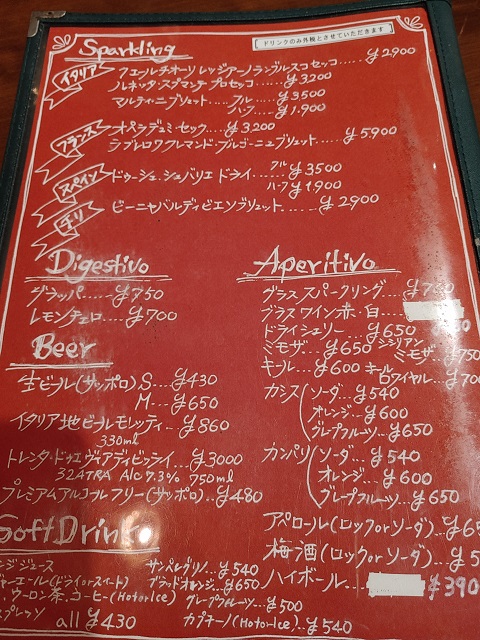 ドリンクのみ外税とさせていただきます
Sparkling
イタリア
フェルチオーリ レッジアーノランブルスコセッコ.... ¥2900
ルネッタ・スプマンテ プロセッコ.... ¥3200
マルティーニブリュット...... フル ¥3500
ハーフ ¥1.900
フランス
オペラデュミ・セック....¥3200
ラブレロワクレマンド・ブルゴーニュブリュット...... ¥5.900
スペイン
ドゥーシュ.シュバリエ ドライ...... フル ¥3500
ハーフ ¥1.900
チリ
ビーニャバルディビエソブリュット...... ¥2900
Digestivo
グラッパ......¥750
レモンチェロ....¥700
Beer
生ビール(サッポロ) S....¥430
M....¥650
イタリア地ビールモレッティ... ¥860
330ml
トレンタ・ドゥエ ヴィアディビッライ...¥3000
32ATRA Alc7.3% 750ml
プレミアムアルコールフリー(サッポロ)...¥480
Aperitivo
グラス スパークリング....¥750
グラス ワイン赤・白
ドライシェリー.....¥650
ミモザ....¥650
シシリアンミモザ...¥750
キール....¥600
キールロワイヤル...¥700
カシス ソーダ...¥540
オレンジ...¥600
グレープフルーツ...¥650
カンパリ ソーダ....¥540
オレンジ....¥600
グレープフルーツ...¥650
アペロール(ロックorソーダ)
梅酒(ロックorソーダ)
ハイボール ¥390
Soft Drink
ジュース
(ドライorスイート)
ウーロン茶、コーヒー(HotorIce)
all ¥430
サンペレグリノ...¥540
ブラッドオレンジ...¥650
グレープフルーツ...¥500
カプチーノ(HotorIce)...¥540